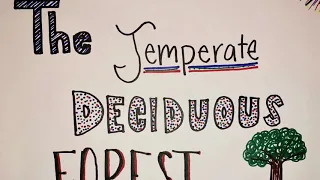 The
Temperate
DECIDUOUS
FOREST